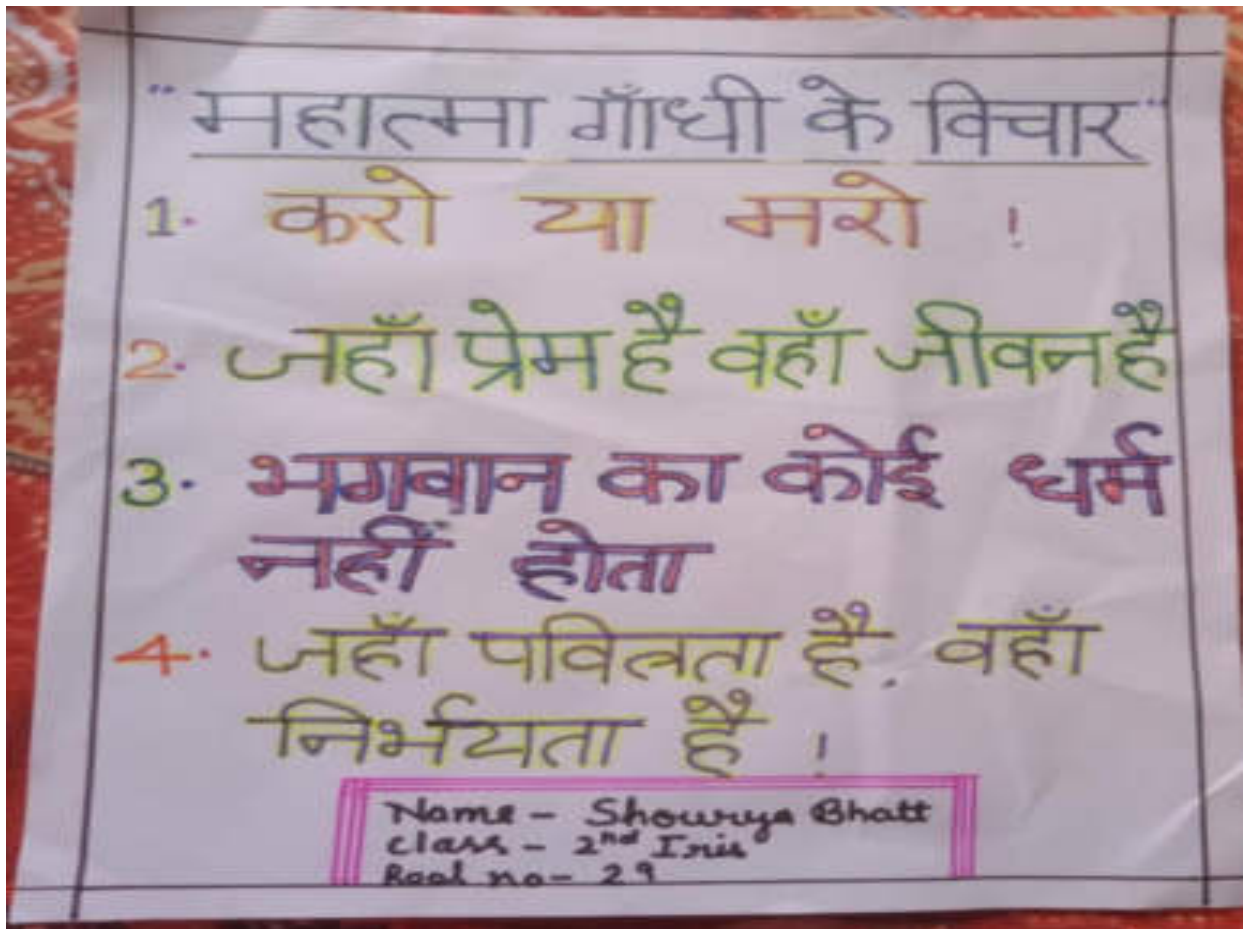 "महात्मा गाँधी के विचार"
1. करो या मरो !
2. जहाँ प्रेम है वहाँ जीवन है
3. भगवान का कोई धर्म
नहीं होता
4. जहाँ पवित्रता है, वहाँ
निर्भयता है !
Name - Shourya Bhatt
class - 2nd Iris
Rool no - 29